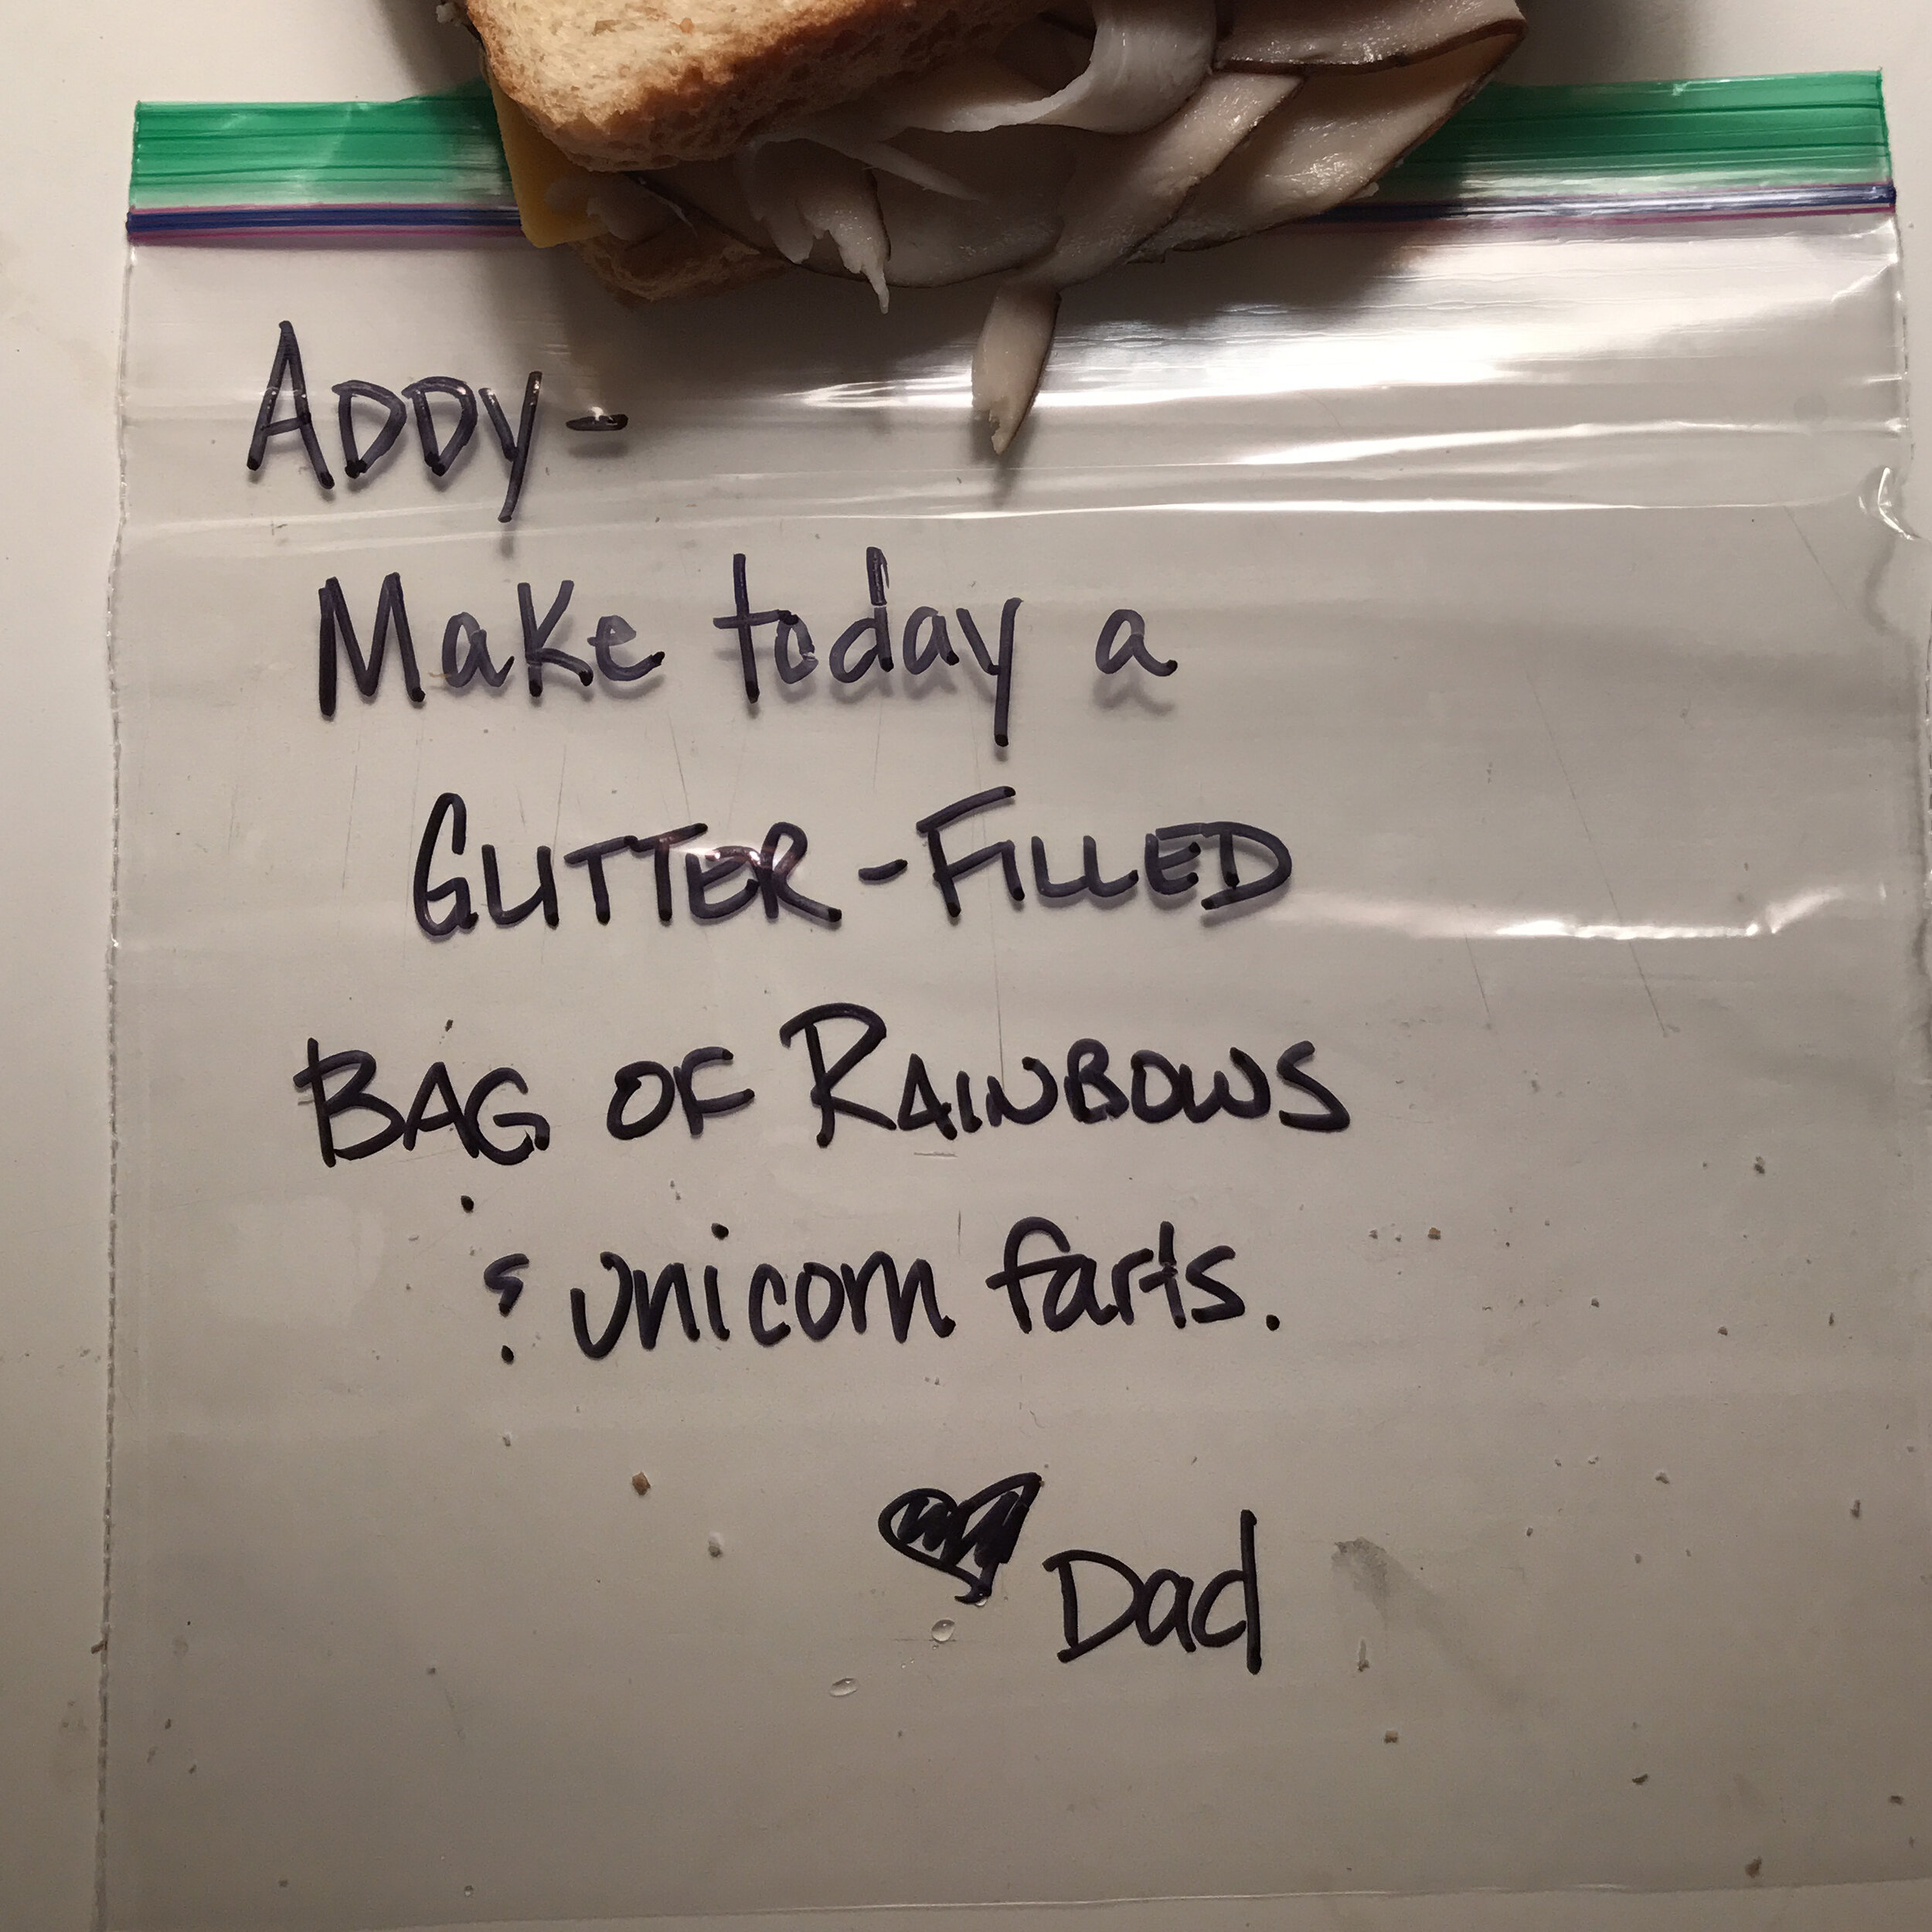 ADDY-
Make today a
GLITTER-FILLED
BAG OF RAINBOWS
& unicorn farts.
Dad